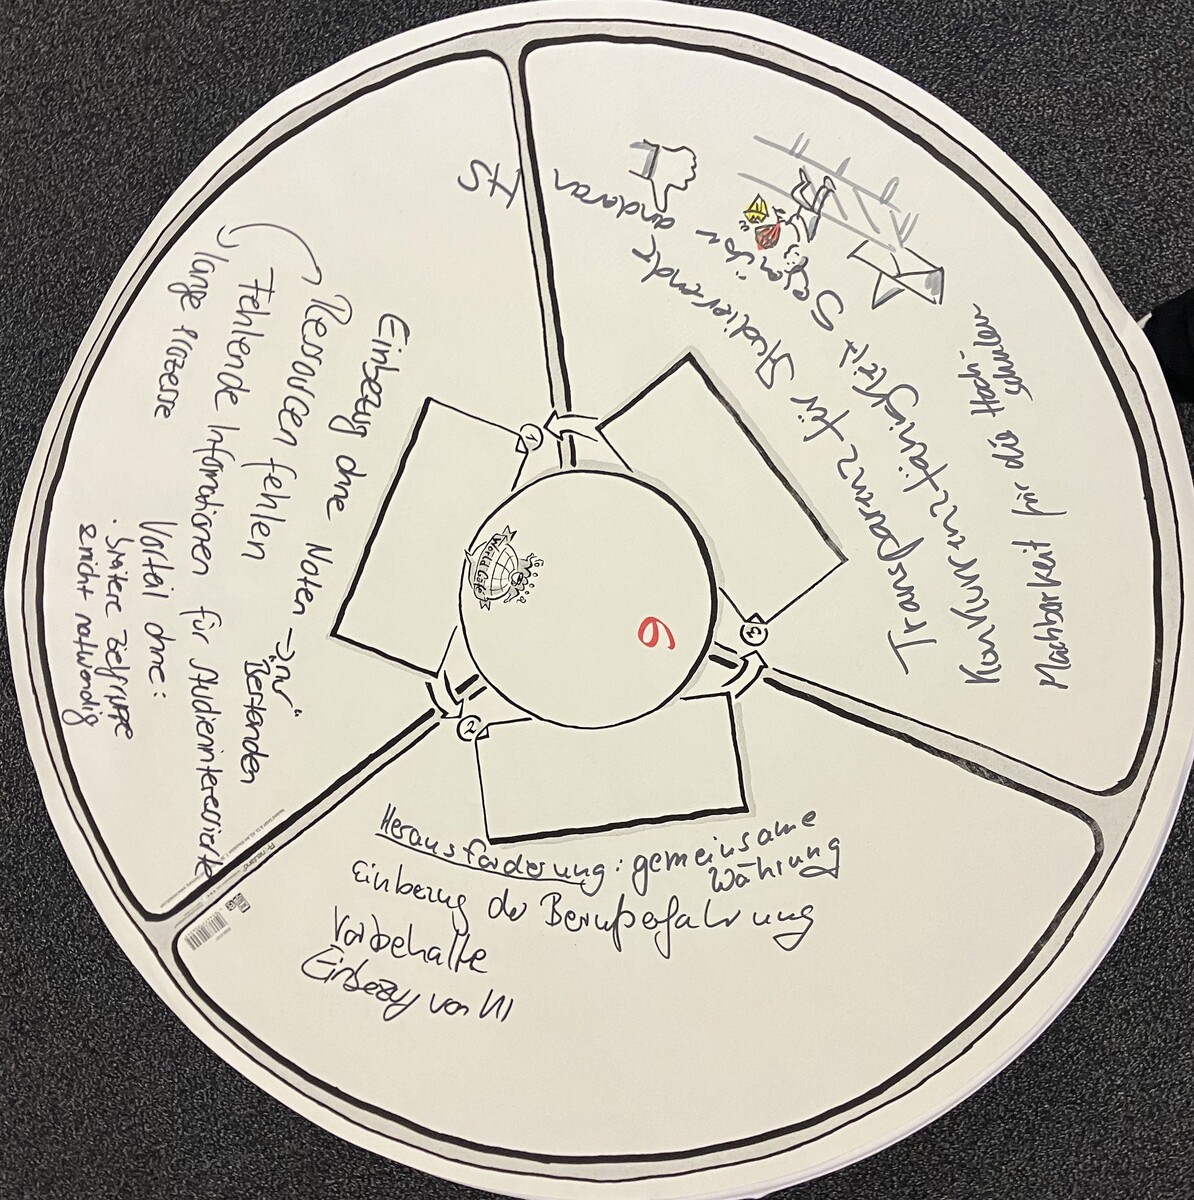 Einbezug ohne Noten → nur
"Bestanden"
Ressourcen fehlen
Fehlende Informationen für Studieninteressierte
lange Prozesse
Vorteil ohne:
spätere Zielgruppe
& nicht notwendig
IS
1
Herausforderung: gemeinsame
Währung
Einbezug der Berufserfahrung
Vorbehalte
Einbezug von KI
2
Transparenz für Studierende
Konkurrenzfähigkeit
andaran
Machbarkeit für die Hoch-
schulen
3
World Café
6